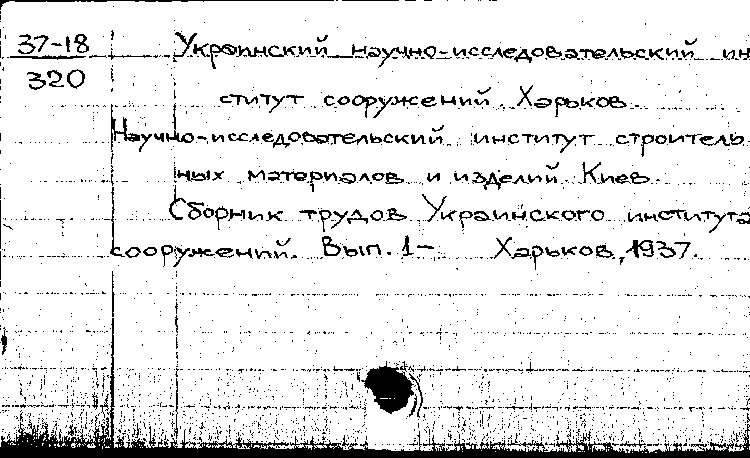 37-18
320
Украинский научно-исследовательский ин
ститут сооружений. Харьков.
Научно-исследовательский институт строитель
ных материалов и изделий. Киев.
Сборник трудов Украинского института
сооружений. Вып. 1- Харьков, 1937.